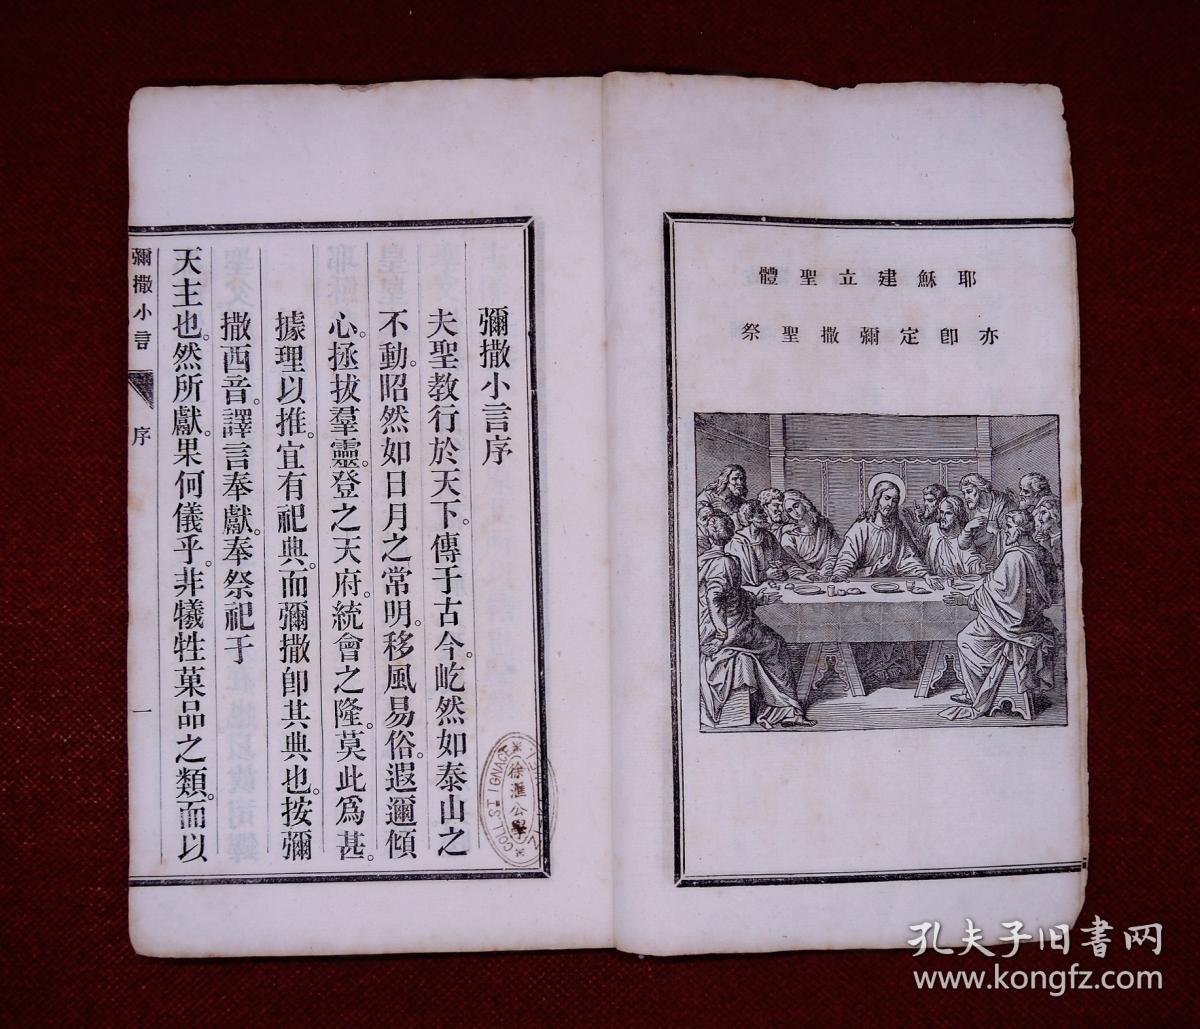 耶穌建立聖體
亦卽定彌撒聖祭
彌撒小言序
夫聖教行於天下。傳于古今。屹然如泰山之
不動。昭然如日月之常明。移風易俗。遐邇傾
心。拯拔羣靈。登之天府。統會之隆。莫此爲甚。
據理以推。宜有祀典。而彌撒卽其典也。按彌
撒西音。譯言奉獻。奉祭祀于
天主也。然所獻。果何儀乎。非犧牲菓品之類。而以
彌撒小言
序
一
徐滙公學
COLL. ST IGNACE
孔夫子旧書网
www.kongfz.com